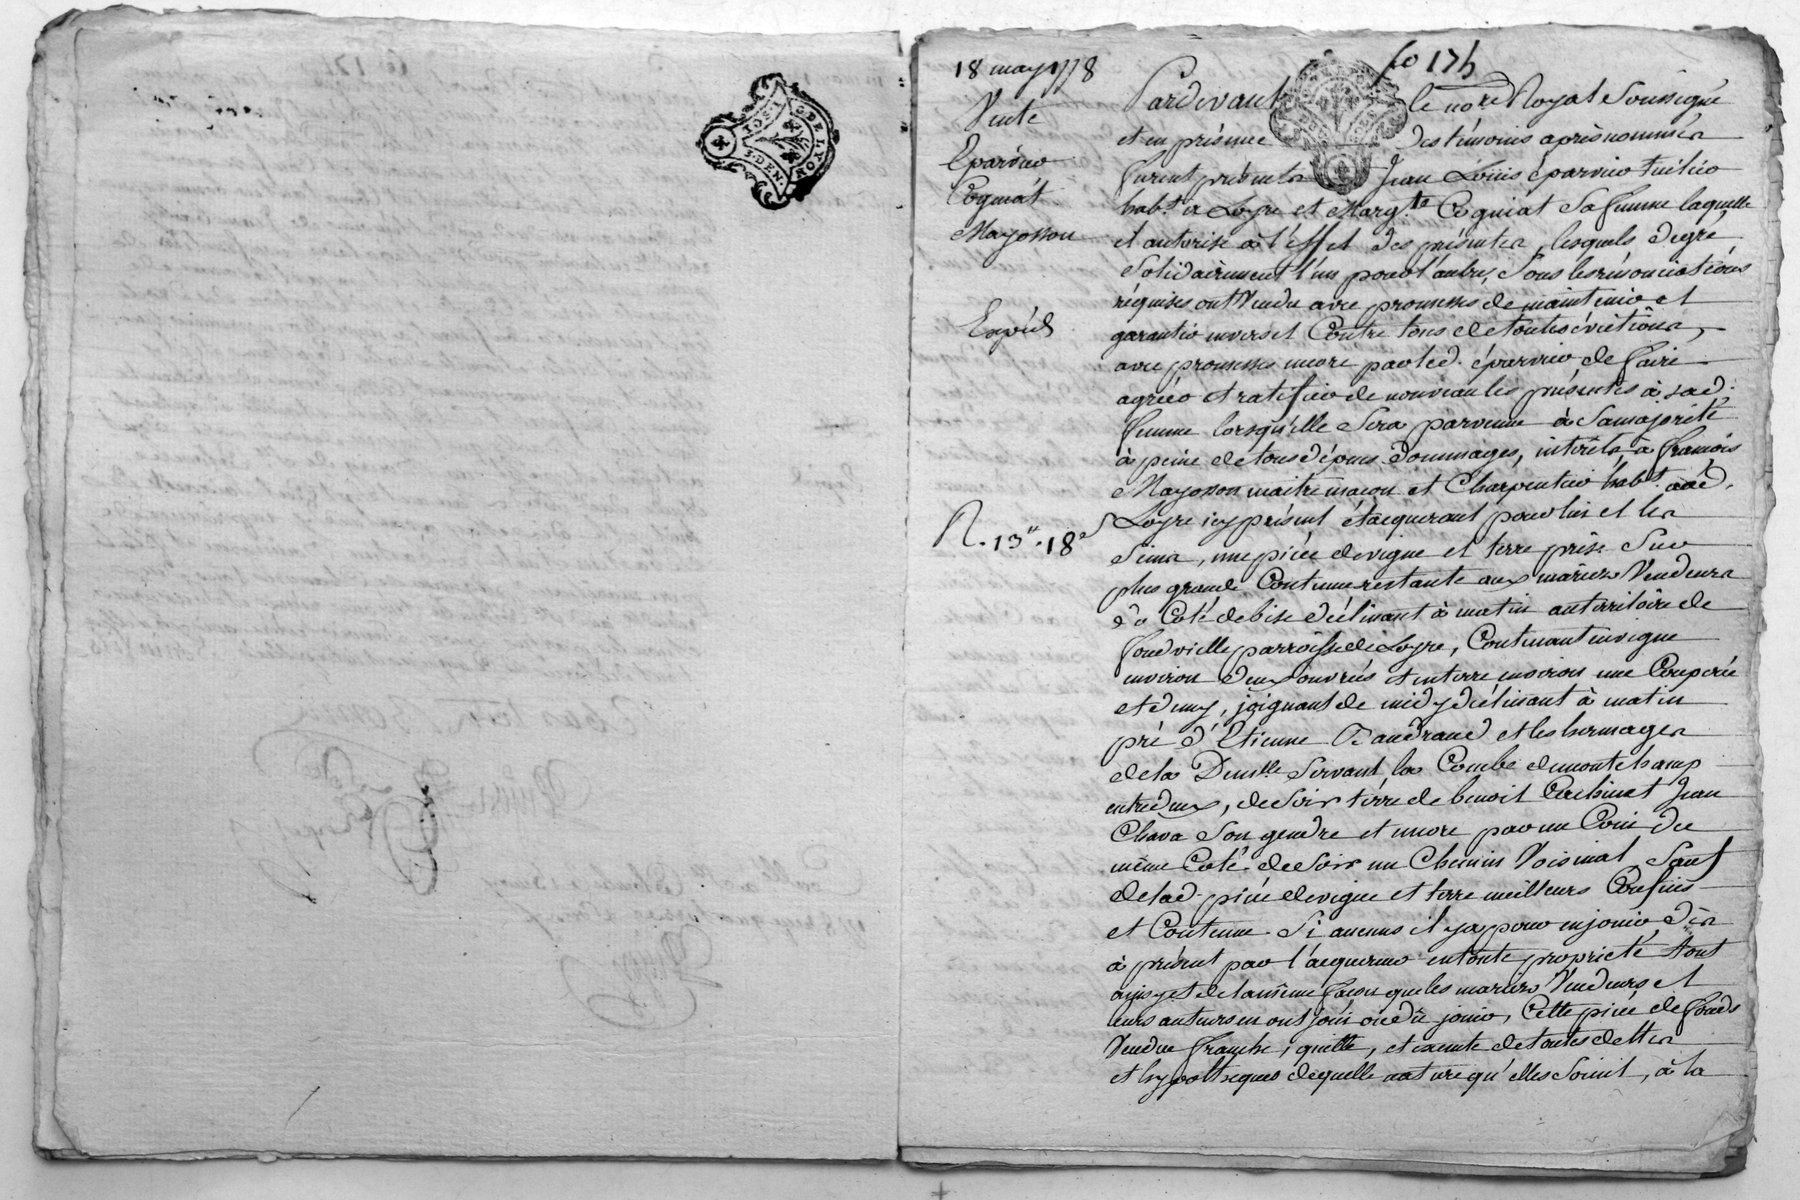 18 may 1778
Vente
Eparvier
Cogniat
Mayosson
Expédié
R. 13tt. 18s
fo 175
G. DE LYON
3. DEN
Pardevant le nore Royal Soussigné
et en présence des témoins après nommés
furent présents Jean Louis éparvier tuilier
habt. à Loyre et Margte. Cogniat Sa femme laquelle
et autorise à l'effet des présentes, lesquels de gré
Solidairement l'un pour l'autre, Sous les rénonciations
réquises ont Vendu avec promesses de maintenir et
garantir envers et Contre tous et toutes évictions,
avec promesses encore par led. éparvier de faire
agréer et ratifier de nouveau les présentes à sad.
femme lorsqu'elle Sera parvenue à Sa majorité
à peine de tous dépens dommages, intérêts, à françois
Mayosson maitre maçon et Charpentier habt. aud.
Loyre icy présent et acquerant pour lui et les
Siens, une pièce de vigne et terre prise Sur
plus grande Contenue restante aux mariés Vendeurs
du Coté de bise déclinant à matin au territoire de
fondvielle parroisse de Loyre, Contenant en vigne
environ deux ouvrées et en terre environ une Couperée
et demy, joignant de midy déclinant à matin
pré d'Etienne Baudrand et les hermages
de la Demlle Servant la Combe de montchamp
entredeux, de Soir terre de benoit Cochinat Jean
Chava Son gendre et encore par un Coin du
même Coté de Soir un Chemin Voisinal Sauf
de lad. pièce de vigne et terre meilleurs Confins
et Contenue. Si aucuns il y a pour en jouir dès
à présent par l'acquereur en toute propriété tout
ainsy et de la même façon que les mariés Vendeurs et
leurs auteurs en ont joui ou dû jouir, Cette pièce de fonds
Vendue franche, quitte, et exempte de toutes dettes
et hypotheques de quelle nature qu'elles Soient, à la